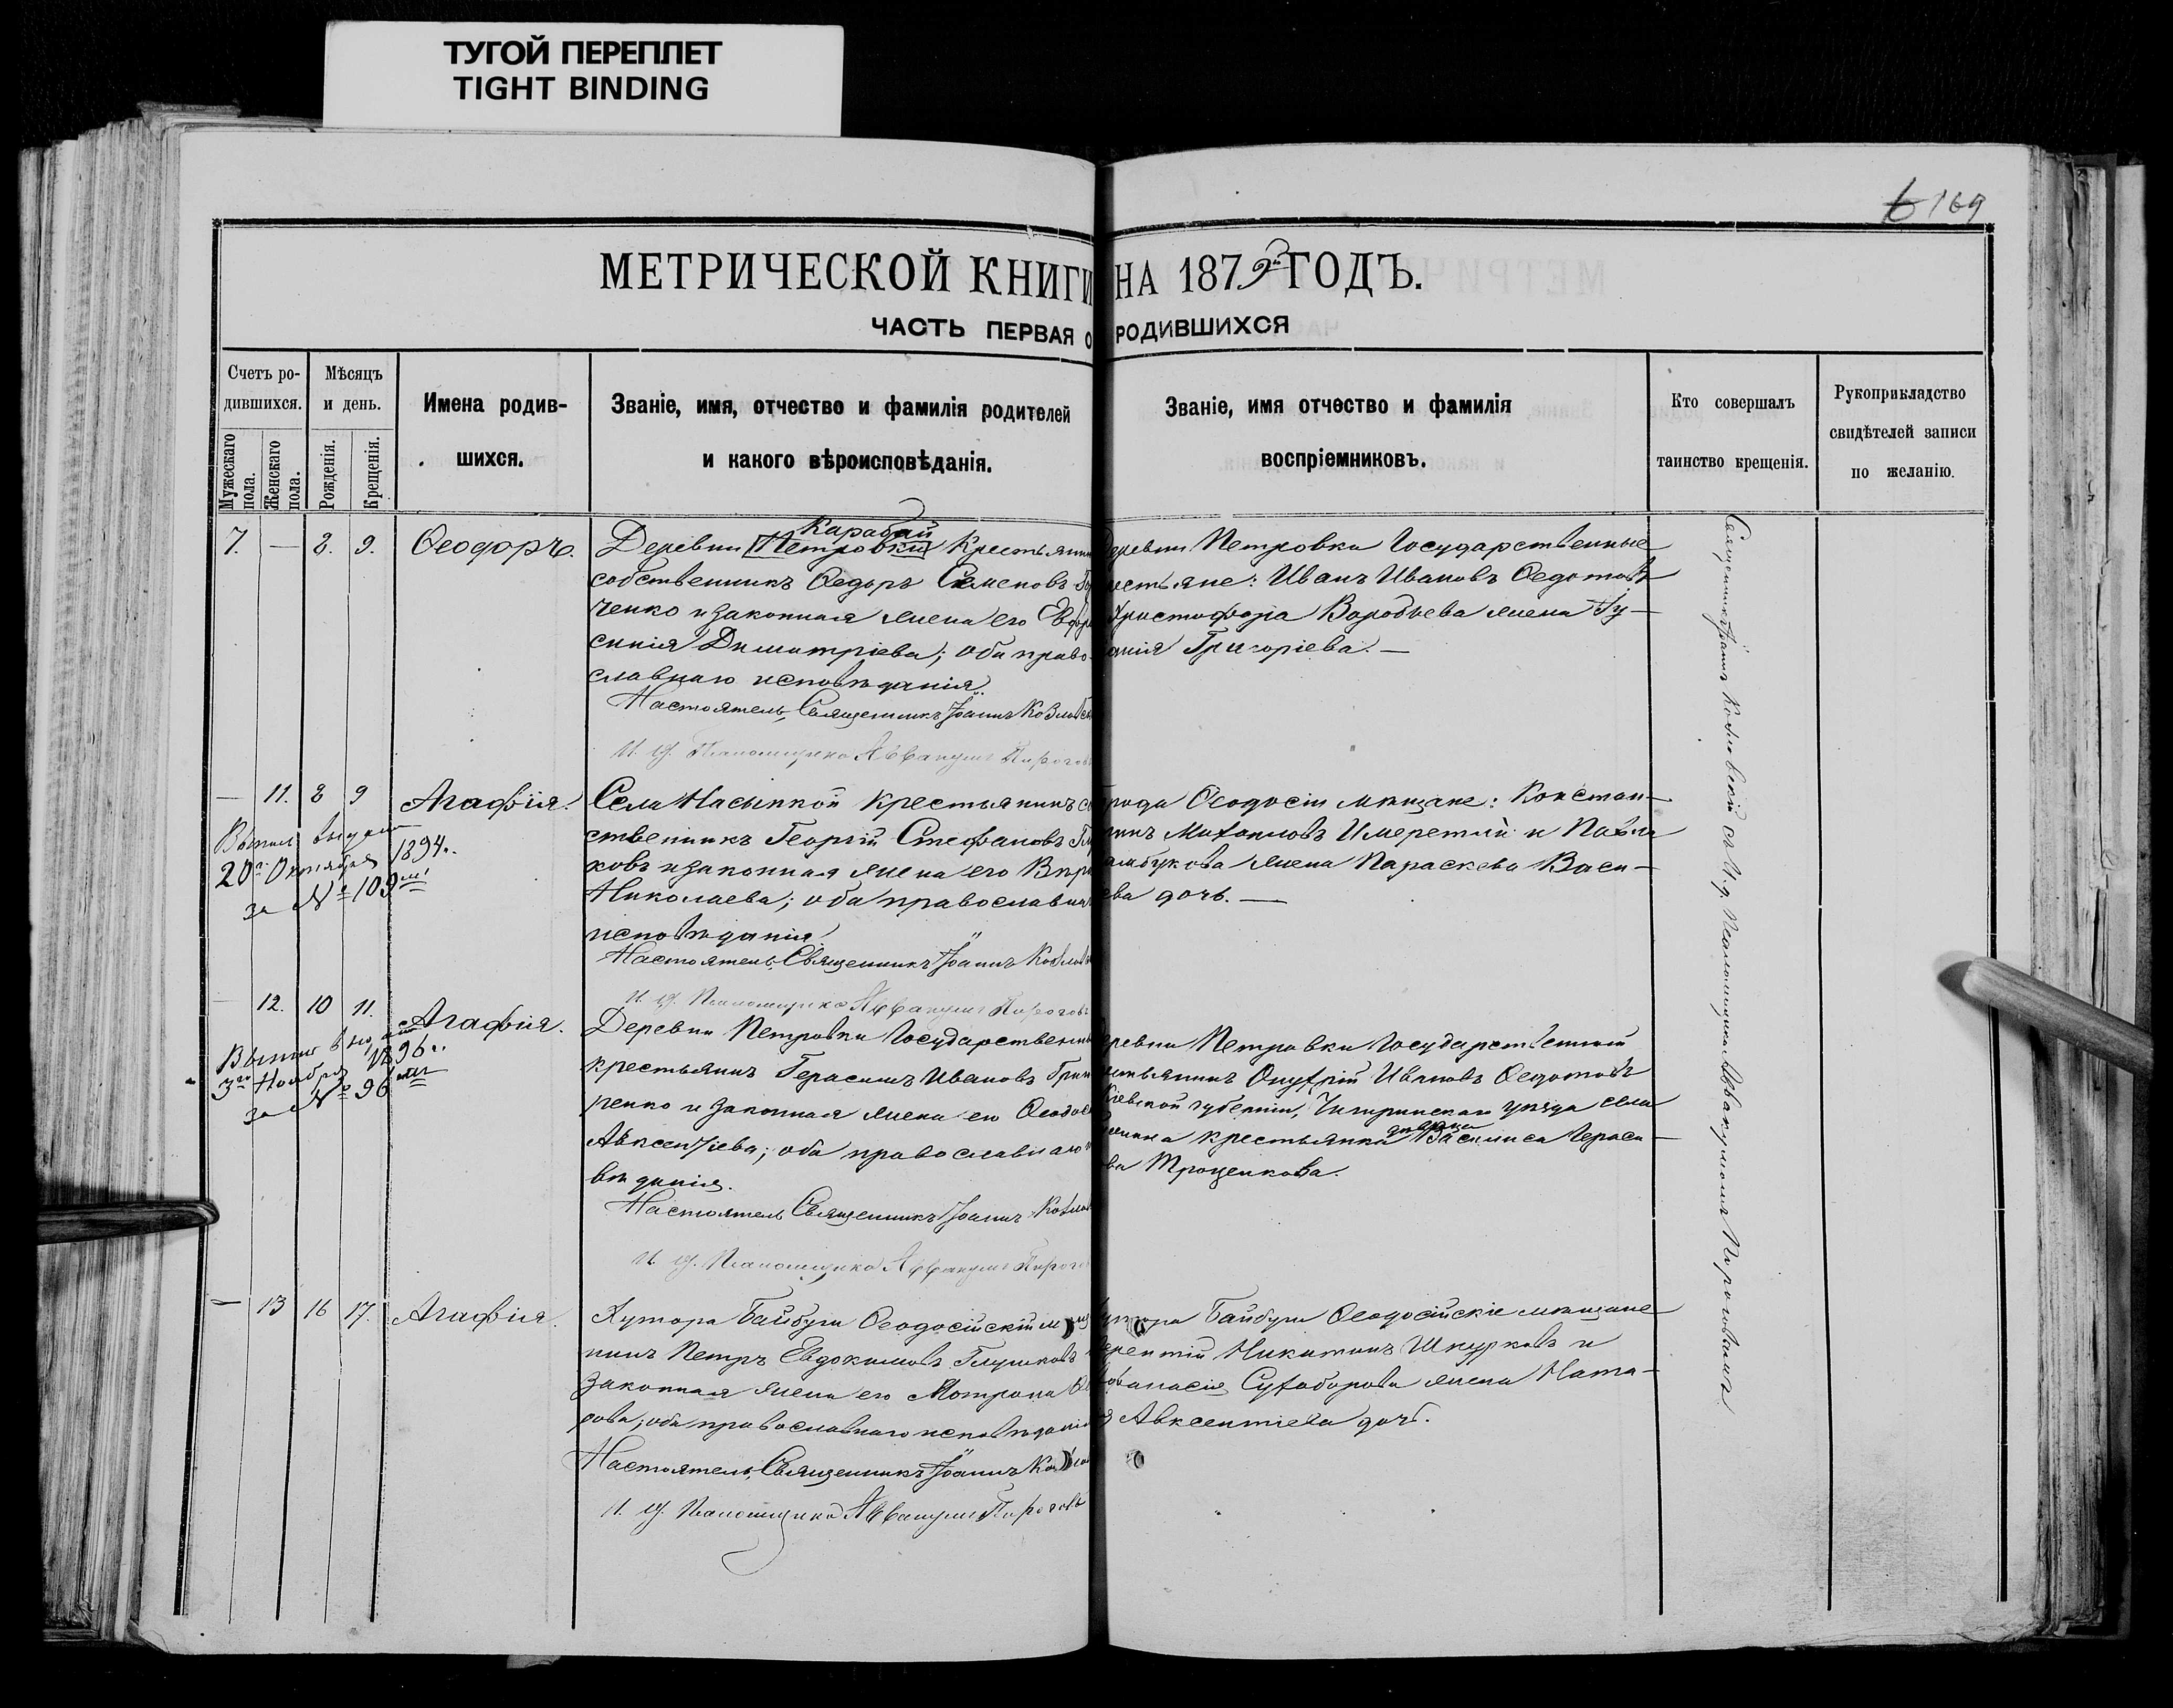 ТУГОЙ ПЕРЕПЛЕТ
TIGHT BINDING
169
МЕТРИЧЕСКОЙ КНИГИ НА 1879 ГОДЪ.
ЧАСТЬ ПЕРВАЯ О РОДИВШИХСЯ
Счетъ ро-
дившихся.
Мужескаго пола.
Женскаго пола.
Мѣсяцъ
и день.
Рожденія.
Крещенія.
Имена родив-
шихся.
Званіе, имя, отчество и фамилія родителей
и какого вѣроисповѣданія.
Званіе, имя отчество и фамилія
воспріемниковъ.
Кто совершалъ
таинство крещенія.
Рукоприкладство
свидѣтелей записи
по желанію.
7. — 8. 9. Ѳеодоръ.
Карабай
Деревни Петровки Крестьянин
собственникъ Ѳедоръ Семеновъ
ченко и законная жена его Евфро
синія Димитріева; оба право-
славнаго исповѣданія.
Настоятель, Священникъ Іоаннъ Козловск
И. д. Псаломщика Аввакумъ Пирогов
Деревни Петровки Государственные
крестьяне: Иванъ Ивановъ Ѳедотовъ
Христофора Воробьева жена
Григоріева. —
— 11. 8 9 Агафія.
Выпись выдана
20го Октября 1894 г.
за № 109мъ
Села Насыпкой Крестьянинъ со
ственникъ Георгій Стефановъ
ковъ и законная жена его
Николаева; оба православна
исповѣданія
Настоятель, Священникъ Іоаннъ Козлов
И. д. Псаломщика Аввакумъ Пирогов
города Ѳеодосіи мѣщане: Констан-
тинъ Михаиловъ Имеретлій и Павла
жена Параскева Васи-
ева дочь. —
— 12. 10 11. Агафія.
Выпись выдана
3го Ноября 1896 г.
за № 96мъ
Деревни Петровки Государственн
крестьянинъ Герасимъ Ивановъ
ренко и законная жена его Ѳеодос
Авксентіева; оба православнаго
вѣданія.
Настоятель Священникъ Іоаннъ Козлов
И. д. Псаломщика Аввакумъ Пирогов
Деревни Петровки Государственный
крестьянинъ Онуфрій Ивановъ Ѳедотовъ
Кіевской губерніи, Чигиринскаго уѣзда села
крестьянка дѣвица Василиса Гераси-
ва Троценкова.
— 13 16 17. Агафія.
Хутора Байбуги Ѳеодосійскій мѣща
нинъ Петръ Евдокимовъ Глушковъ
законная жена его Мотрона
рова; оба православнаго исповѣданія
Настоятель, Священникъ Іоаннъ Козлов
И. д. Псаломщика Аввакумъ Пироговъ
хутора Байбуги Ѳеодосійскіе мѣщане
Терентій Никитинъ Шкурковъ и
Аѳанасія Сухоборова жена Ната-
я Авксентіева дочь.
Священникъ Іоаннъ Козловскій съ И. д. Псаломщика Аввакумомъ Пироговымъ.